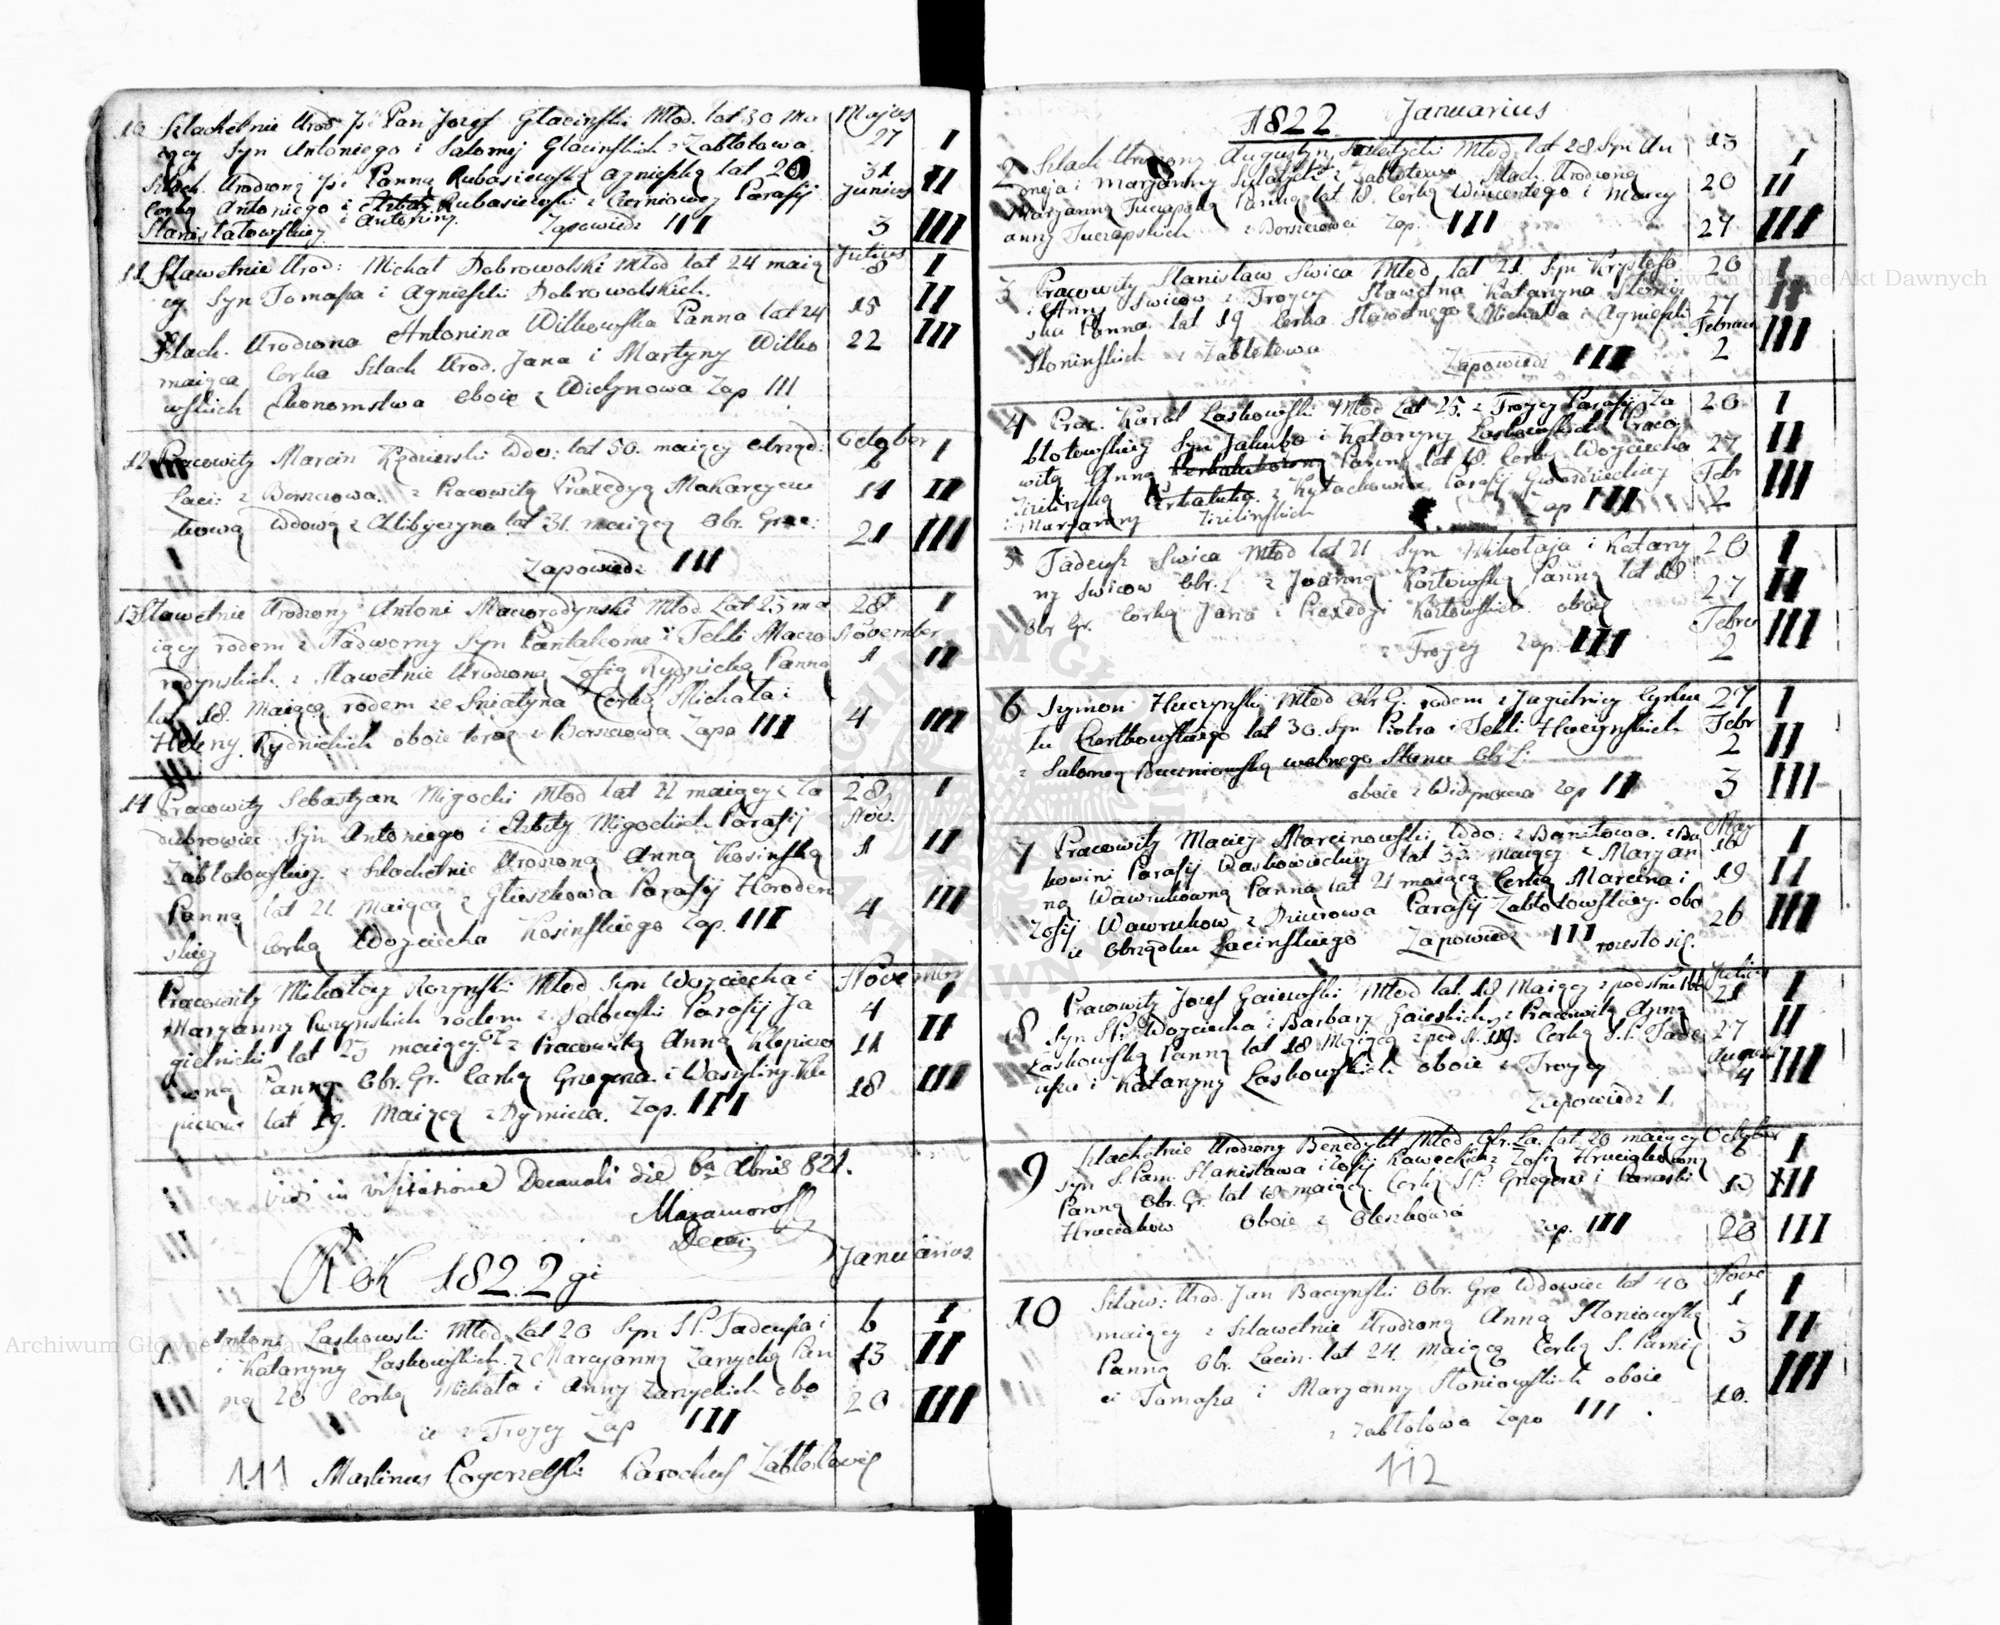 10 Szlachetnie Urod: Jp: Pan Jozef Glacinski Młod. lat 30 ma
iący Syn Antoniego i Salomej Glacinskich z Zabłotowa.
Szlach. Urodzoną Jp: Panną Rubasiewską Agnieszką lat 20
Corką Antoniego i Rubasiewski z Czerniowcy Parafij
Stanisławowskiey i Antoniny. Zapowiedz III
Majus
27 I
31 II
Junius
3 III
11 Sławetnie Urod: Michał Dobrowolski Młod lat 24 maią
cy Syn Tomasza i Agnieszki Dobrowolskich.
Szlach. Urodzona Antonina Wilkowska Panna lat 24
maiąca Corka Szlach Urod. Jana i Martyny Wilko
wskich Ekonomstwa oboie z Widynowa Zap III
Julius
8 I
15 II
22 III
12 Pracowity Marcin Kędzierski Wdo: lat 50. maiący Obrząd:
Łaci: z Borszczowa. z Pracowitą Praxedyą Makarycz
kową Wdową z Albyczyna lat 31. maiącą Obr. Grec:
Zapowiedz III
October
I
14 II
21 III
13 Sławetnie Urodzony Antoni Macorodynski Młod. Lat 25 ma
iący rodem z Nadworny Syn Pantaliona i Tekli Macro
rodynskich. z Sławetnie Urodzoną Zofią Rydnicką Panną
lat 18. Maiącą rodem ze Sniatyna Corką Michała i
Heleny Rydnickich oboie teraz z Borszczowa Zapo III
28 I
November
1 II
4 III
14 Pracowity Sebastyan Migocki Młod lat 22 maiący z Za
dubrowiec Syn Antoniego i Elzbity Migockich Parafij
Zabłotowskiey. z Szlachetnie Urodzoną Anną Kosinską
Panną lat 21. Maiącą z Głuszkowa Parafij Horoden
skiey Corką Woyciecha Kosinskiego Zap. III
28 I
Nov.
1 II
4 III
Pracowity Mikołay Rozynski Młod Syn Woyciecha i
Maryanny Rozynskich rodem z Parafij Ja
gielnicki lat 23 maiący. z Pracowitą Anną Klopiczo
wną Panną Obr. Gr. Corką Gregora i Wasyliny Klo
piczow lat 19. Maiącą z Dymicza. Zap. III
November
I
4 II
11
18 III
Vidi in visitatione Decanali die 6a Xbris 821.
Decan
Rok 1822gi
Januarius
1. Antoni Laskowski Młod. Lat 20 Syn Sl. Tadeusza i
i Katarzyny Laskowskich. z Maryanną Zarycką Pan
ną 20 Corką Michała i Anny Zaryckich obo
ie z Troycy Zap III
6 I
13 II
20 III
111 Martinus Pogorzelski Parochus Zabłotowie
1822 Januarius
2 Szlach Urodzony Augustyn Młod. lat 28 Syn An
dreja i Maryanny z Zabłotowa Szlach. Urodzoną
Maryanną Tuczapską Panną lat 18. Corką Wincentego i Mary
anny Tuczapskich z Borszczowa Zap. III
13 I
20 II
27 III
3 Pracowity Stanisław Swica Młod. lat 21. Syn Krysztofa
i Anny Swicow z Troycy Sławetna Katarzyna Słonin
ska Panna lat 19 Corka Sławetnego Michała i Agnieszki
Słoninskich z Zabłotowa Zapowiedz III
20 I
27 II
Februar
2 III
4 Prac. Karol Laskowski Młod Lat 25. z Troycy Parafij Za
błotowskiey Syn Jakuba i Katarzyny Laskowskich Praco
witą Anną Panną lat 18. Corką Woyciecha
Zielinską z Kułachowic Parafij Gwozdzieckiey
i Maryanny Zielinskich Zap III
20 I
27 II
Febr
2 III
5 Tadeusz Swica Młod lat 21 Syn Mikołaja i Katarzy
ny Swicow Obr. Ł z Joanną Kozłowską Panną lat 18
Obr Gr. Corką Jana i Praxedyi Kozłowskich. oboie
z Troycy Zap. III
20 I
27 II
Febru
2 III
6 Szymon Huczynski Młod Obr G. rodem z Jagielnicy Cyrku
łu Czortkowskiego lat 30. Syn Piotra i Tekli Huczynskich
z Salomeą Buczniowską wolnego Stanu Obr Ł.
oboie z Widynowa Zap II
27 I
Febr
2 II
3 III
7 Pracowity Maciey Marcinowski, Wdo: z Baniłowa. z Bu
kowini Parafij Waskowieckiey lat 35. maiący z Maryan
ną Wawrukowną Panną lat 21 maiącą Corką Marcina i
Zofij Wawrukow z Dzurowa Parafij Zabłotowskiey. obo
ie Obrządku Łacinskiego Zapowiedz III rozesło się.
May
I
19 II
26 III
8 Pracowity Jozef Gaiewski Młod lat. 19 Maiący z pod Nr
Syn Sl. Woyciecha i Barbary Gaieskich, z Pracowitą Anną
Laskowską Panną lat 18 Maiącą z pod N. 119. Corką S.P. Tade
usza i Katarzyny Laskowskich oboie z Troycy
Zapowiedz 1.
Julius
21 I
27 II
August
4 III
9 Szlachetnie Urodzony Benedykt Młod. Obr. La. lat 20 maiący
Syn S. Pam. Stanisława i Zofij Kaweckich z Zofią
Panną Obr. Gr lat 18 maiącą. Corką Sl. Gregora i Paraski
Hruciakow Oboie z Oleszkowa Zap. III
October
6 I
13 III
20 III
10 Sław: Urod. Jan Baczynski Obr. Gre Wdowiec lat 40
maiący z Szlawetnie Urodzoną Anną Słoniowską
Panną Obr. Łacin. lat 24. Maiącą Corką S. Pamię
ci Tomasza i Maryanny Słoniowskich oboie
z Zabłotowa Zapo III
Nove
1 I
3 II
10. III
112
Archiwum Główne Akt Dawnych
Archiwum Główne Akt Dawnych